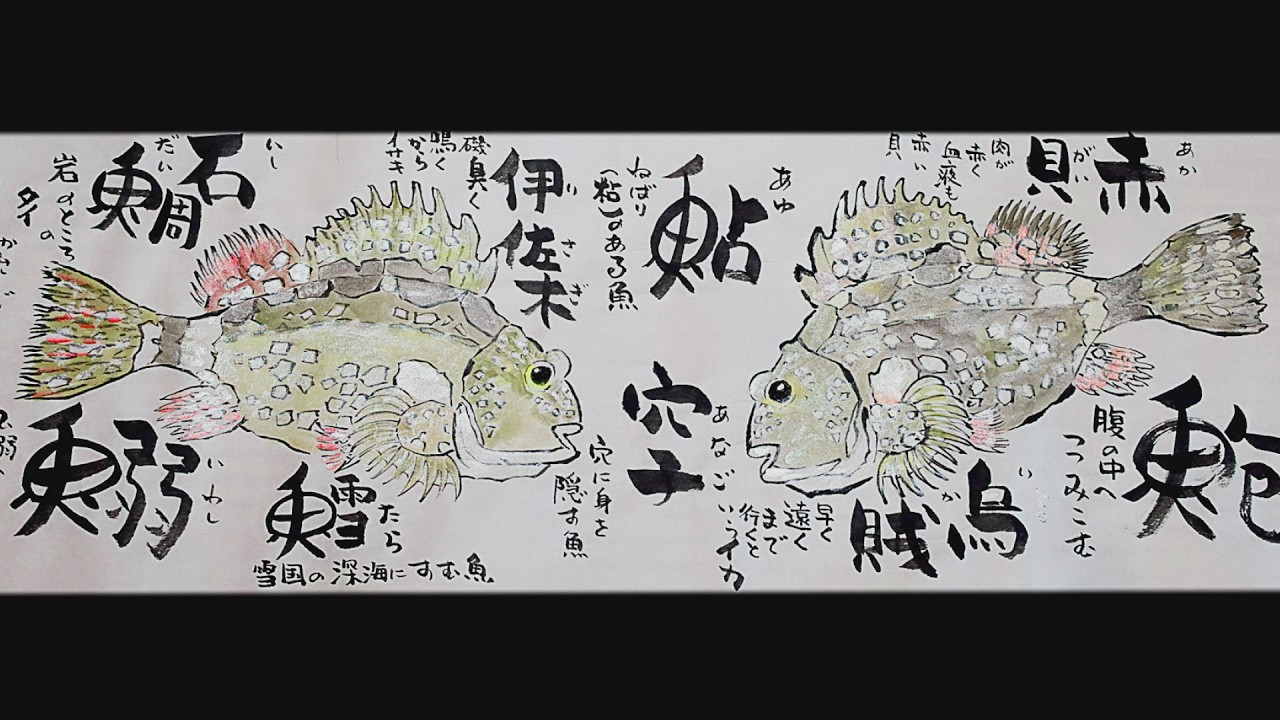 赤貝
あか
がい
肉が
赤く
血液も
赤い
貝
鮑
腹の中へ
つつみこむ
烏賊
い
か
早く
遠く
まで
行くと
いうイカ
鮎
あゆ
ねばり
(粘)のある魚
穴子
あなご
穴に身を
隠す魚
伊佐木
いさぎ
磯臭く
鳴く
から
イサキ
鱈
たら
雪国の深海にすむ魚
石鯛
いし
だい
岩のところ
の
タイ
鰯
いわし